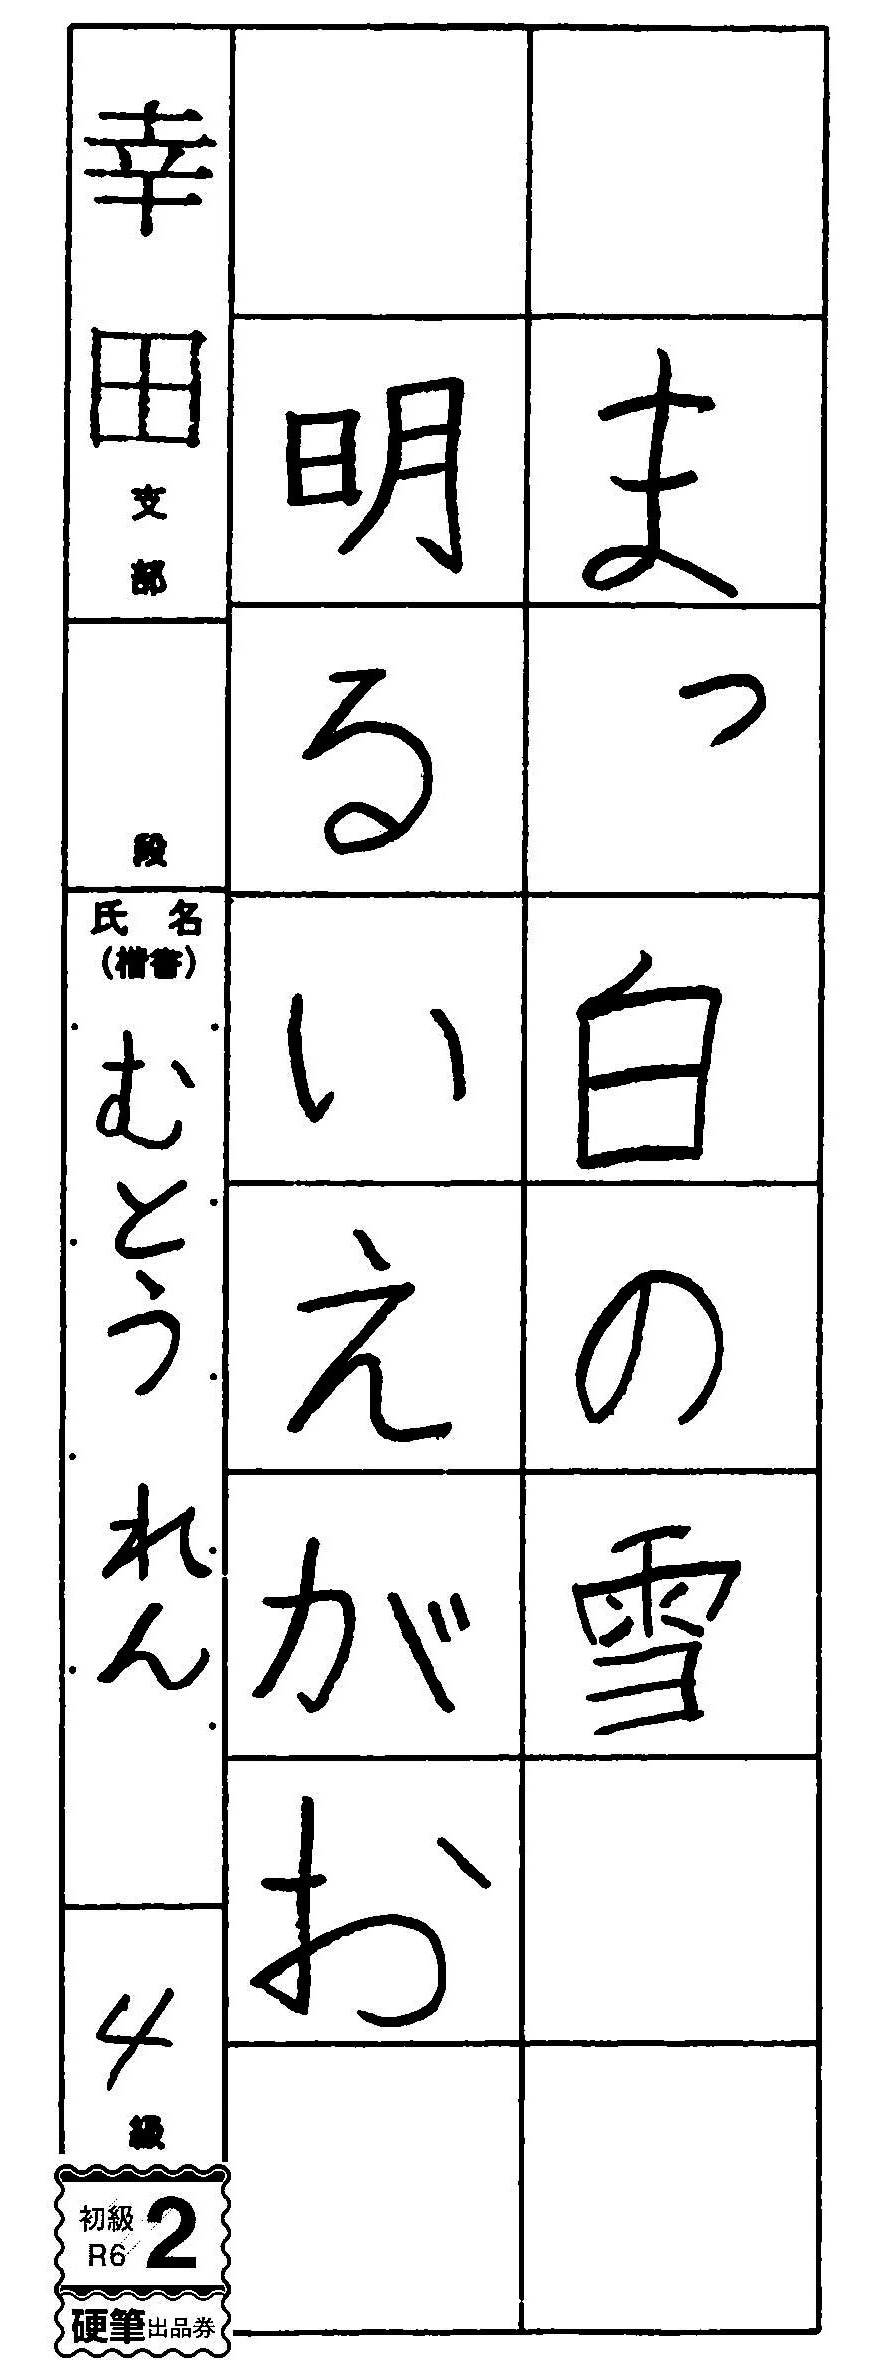 まっ白の雪
明るいえがお
幸田支部
段
氏名
(楷書)
むとうれん
4級
初級
R6
2
硬筆出品券